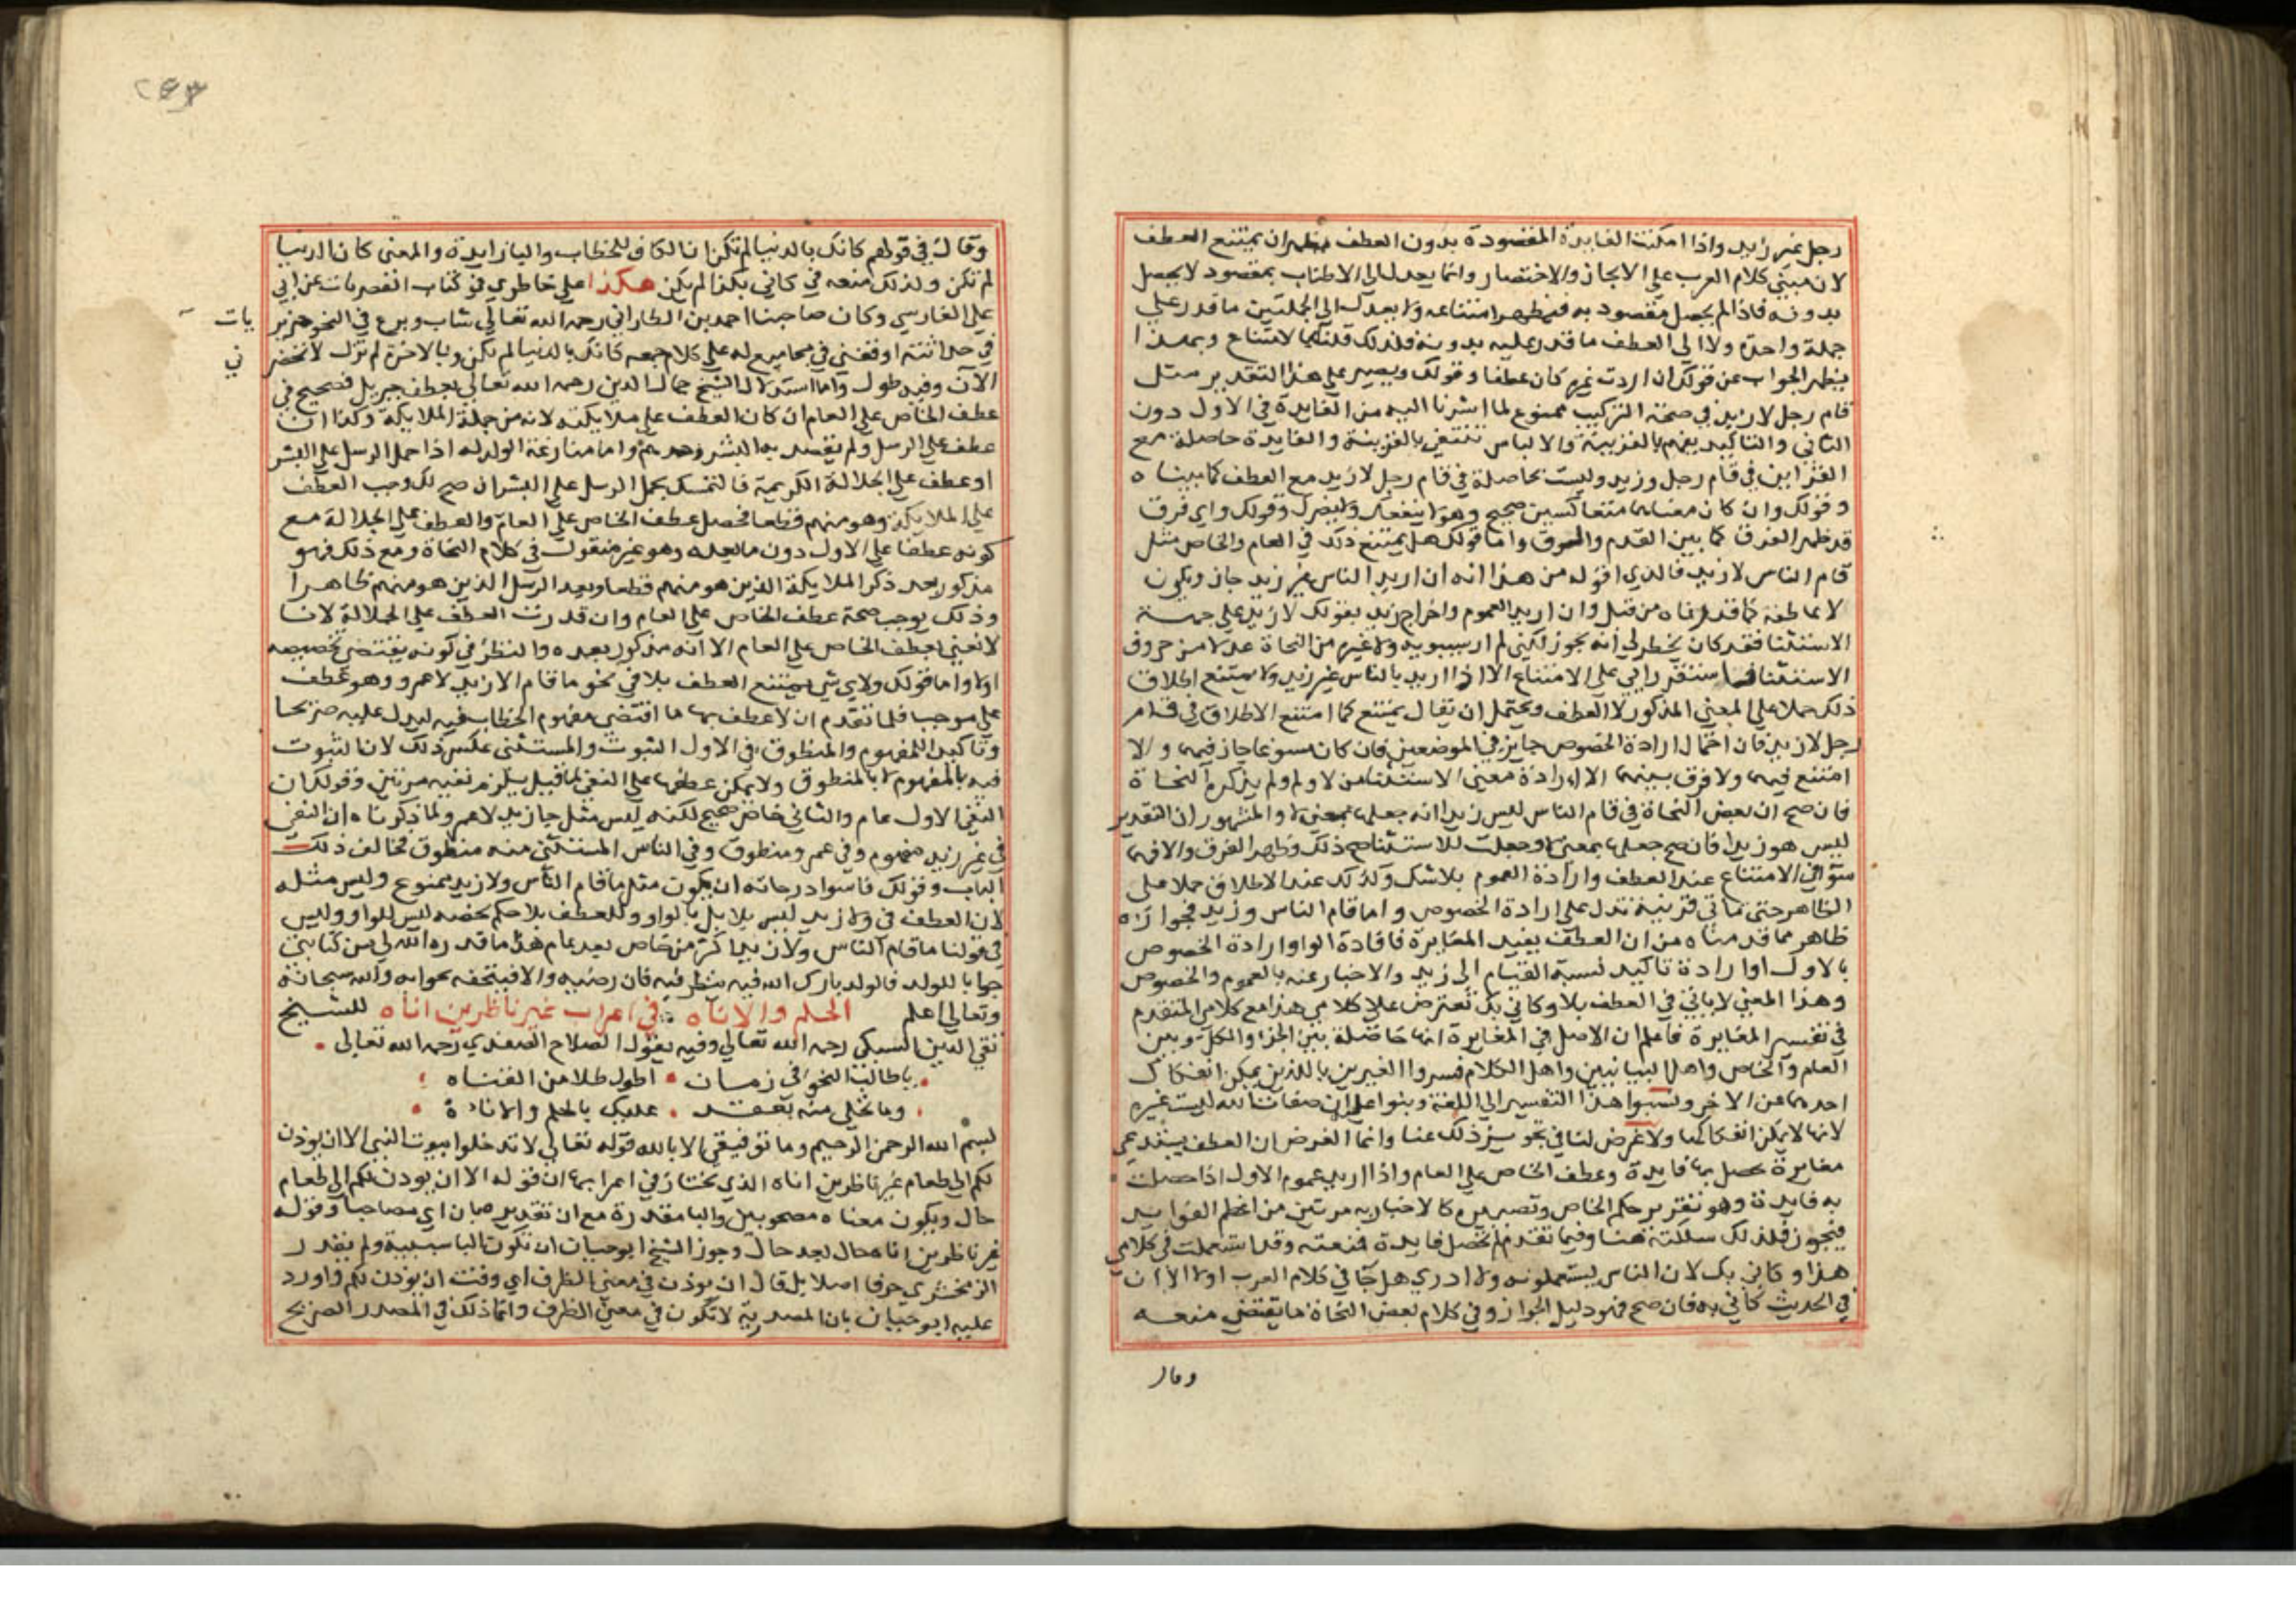 رجل غير زيد واذا امكنت الفايدة المقصودة بدون العطف فظهر ان يمتنع العطف
لان مبني كلام العرب على الايجاز والاختصار وانما يعدل الى الاطناب بمقصود لا يحصل
بدونه فاذا لم يحصل مقصود به فيظهر امتناعه ولا يعدل الى الجملتين ما قدر على
جملة واحدة ولا الى العطف ما قدر عليه بدونه فلذلك قلنا بالامتناع وبهذا
يظهر الجواب عن قولك ان اردت غيره كان عطفا وقولك ويصير على هذا التقدير مثل
قام رجل لا زيد في صحة التركيب ممنوع لما اشرنا اليه من الفايدة في الاول دون
الثاني والتاكيد يفهم بالقرينة والالباس تنتفي بالقرينة والفايدة حاصلة مع
القراين في قام رجل وزيد وليست بحاصلة في قام رجل لا زيد مع العطف كما بيناه
وقولك وان كان معناهما متعاكسين صحيح وهو لا ينفعك ولا يضرك وقولك واي فرق
قد ظهر الفرق كما بين القدم والفرق واما قولك هل يمتنع ذلك في العام والخاص مثل
قام الناس لا زيد فالذي اقوله من هذا انه ان اريد الناس غير زيد جاز وتكون
لا عاطفة كما قدرناه من قبل وان اريد العموم واخراج زيد بقولك لا زيد على جهة
الاستثنا فقد كان يخطر لي انه يجوز لكني لم ار سيبويه ولا غيره من النحاة عد لا من حروف
الاستثنا فاستقر رايي على الامتناع الا اذا اريد بالناس غير زيد ولا يمتنع اطلاق
ذلك حملا على المعنى المذكور لا العطف ويحتمل ان يقال يمتنع كما امتنع الاطلاق في قام
رجل لا زيد فان احتمال ارادة الخصوص جايز في الموضعين فان كان مسوغا جاز فيهما والا
امتنع فيهما ولا فرق بينهما الا ارادة معنى الاستثنا من لا ولم يذكره النحاة
فان صح ان بعض النحاة في قام الناس ليس زيدا انه جعلها بمعنى لا والمشهور ان التقدير
ليس هو زيدا فان صح جعلها بمعنى لا وجعلت للاستثنا صح ذلك وظهر الفرق والا فهما
سوا في الامتناع عند العطف وارادة العموم بلا شك وكذلك عند الاطلاق حملا على
الظاهر حتى تاتي قرينة تدل على ارادة الخصوص واما قام الناس وزيد فجوازه
ظاهر مما قدمناه من ان العطف يفيد المغايرة فافادة الواو ارادة الخصوص
بالاول او ارادة تاكيد نسبة القيام الى زيد والاخبار عنه بالعموم والخصوص
وهذا المعنى لا ياتي في العطف بلا وكاني بك تعترض على كلامي هذا مع كلامي المتقدم
في تفسير المغايرة فاعلم ان الاصل في المغايرة انها حاصلة بين الجزء والكل وبين
العام والخاص واهل البيانيين واهل الكلام فسروا الغيرين باللذين يمكن انفكاك
احدهما عن الاخر ونسبوا هذا التفسير الى اللغة وبنوا عليه ان صفات الله ليست غيره
لانها لا يمكن انفكاكها ولا غرض لنا في تجويز ذلك عنا وانما الغرض ان العطف يستدعي
مغايرة يحصل بها فايدة وعطف الخاص على العام واذا اريد عموم الاول اذا حصلت
به فايدة وهو تقرير حكم الخاص وتصييره كالاخبار به مرتين من اعظم الفوايد
فيجوز فلذلك سلكته هنا وفيما تقدم لم تحصل فايدة فمنعته وقد استعملت في كلامي
هذا وكاني بك لان الناس يستعملونه ولا ادري هل جا في كلام العرب اولا الا ان
في الحديث كاني به فان صح فهو دليل الجواز وفي كلام بعض النحاة ما يقتضي منعه
وقال
وقال في قولهم كانك بالدنيا لم تكن ان الكاف للخطاب والبا زايدة والمعنى كان الدنيا
لم تكن ولذلك منعه في كاني بكذا لم يكن هكذا على خاطري في كتاب القصريات عن ابي
علي الفارسي وكان صاحبنا احمد بن الطاراني رحمه الله تعالى شاب وبرع في النحو
يات
ني
في حداثته اوقفني في مجاميع له على كلام جمعه كانك بالدنيا لم تكن وبالاخرة لم تزل لا تحضر
الان وفيه طول واما استدلال الشيخ جمال الدين رحمه الله تعالى بعطف جبريل فصحيح في
عطف الخاص على العام ان كان العطف على ملايكته لانه من جملة الملايكة وكذا ان
عطف على الرسل ولم يقصد به البشر وحدهم واما منازعة الولد له اذا حمل الرسل على البشر
او عطف على الجلالة الكريمة فالتمسك بحمل الرسل على البشر ان صح لك وجب العطف
على الملايكة وهو منهم قطعا فحصل عطف الخاص على العام والعطف على الجلالة مع
كونه عطفا على الاول دون ما يعده وهو غير منقول في كلام النحاة ومع ذلك فهو
مذكور بعد ذكر الملايكة الذين هو منهم قطعا وبعد الرسل الذين هو منهم ظاهرا
وذلك يوجب صحة عطف الخاص على العام وان قدرت العطف على الجلالة لانا
لا نعني بعطف الخاص على العام الا انه مذكور بعده والنظر في كونه يقتضي تخصيصه
اولا واما قولك ولاي شي يمتنع العطف بلا في نحو ما قام الا زيد لا عمرو وهو عطف
على موجب فلما تقدم ان لا عطف بها ما اقتضى مفهوم الخطاب فيه ليدل عليه صريحا
وتاكيدا للمفهوم والمنطوق في الاول الثبوت والمستثنى عكس ذلك لان الثبوت
فيه بالمفهوم لا بالمنطوق ولا يمكن عطفها على النفي لما قيل يلزم نفيه مرتين وقولك ان
النفي الاول عام والثاني خاص صحيح لكنه ليس مثل جا زيد لا عمرو لما ذكرناه ان النفي
في غير زيد مفهوم وفي عمرو منطوق وفي الناس المستثنى منه منطوق مخالف ذلك
الباب وقولك فاسوا درجاته ان يكون مثل ما قام الناس ولا زيد ممنوع وليس مثله
لان العطف في ولا زيد ليس بلا بل بالواو وللعطف بلا حكم يخصه ليس للواو وليس
في قولنا ما قام الناس ولا زيد اكثر من خاص بعد عام هذا ما قدره الله لي من كتابتي
جوابا للولد فالولد بارك الله فيه ينظر فيه فان رضيه والا فيتحفه بجوابه والله سبحانه
وتعالى اعلم الحلم والاناه في اعراب غير ناظرين اناه للشيخ
تقي الدين السبكي رحمه الله تعالى وفيه يقول الصلاح الصفدي رحمه الله تعالى
يا طالب النحو في زمان اطول ظلا من القناه
وما تحلى منه بعقد عليك بالحلم والاناة
بسم الله الرحمن الرحيم وما توفيقي الا بالله قوله تعالى لا تدخلوا بيوت النبي الا ان يوذن
لكم الى طعام غير ناظرين اناه الذي يختار في اعرابها ان قوله الا ان يوذن لكم الى طعام
حال ويكون معناه مصحوبين والبا مقدرة مع ان تقديره بان اي مصاحبا وقوله
غير ناظرين اناه حال بعد حال وجوز الشيخ ابو حيان ان تكون البا سببية ولم يقدر
الزمخشري حرفا اصلا بل قال ان يوذن في معنى الظرف اي وقت ان يوذن لكم واورد
عليه ابو حيان بان المصدرية لا تكون في معنى الظرف وانما ذلك في المصدر الصريح